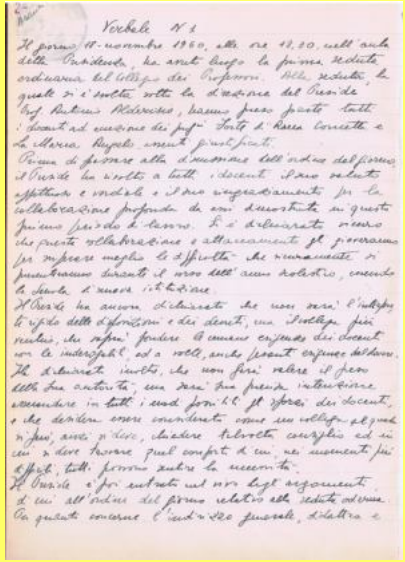 Verbale N 1
Il giorno 18 novembre 1960, alle ore 18,30, nell'aula
della Presidenza, ha avuto luogo la prima seduta
ordinaria del Collegio dei Professori. Alla seduta, la
quale si è svolta sotto la direzione del Preside
Prof. Antonio, hanno preso parte tutti
i docenti ad eccezione dei proff. Forte di Rocca Concetta e
La Marca Angelo assenti giustificati.
Prima di passare alla discussione dell'ordine del giorno,
il Preside ha rivolto a tutti i docenti il suo saluto
affettuoso e cordiale e il suo ringraziamento per la
collaborazione profonda da essi dimostrata in questo
primo periodo di lavoro. Si è dichiarato sicuro
che questa collaborazione e attaccamento gli gioveranno
per superare meglio le difficoltà che sicuramente si
presenteranno durante il corso dell'anno scolastico, essendo
la Scuola di nuova istituzione.
Il Preside ha ancora dichiarato che non sarà l'interpre
te rigido delle disposizioni e dei decreti, ma il collega più
vecchio, che saprà fondere le umane esigenze dei docenti
con le inderogabili, ed a volte, anche pesanti esigenze del dovere.
Ha dichiarato inoltre, che non farà valere il peso
della sua autorità, ma sarà sua precisa intenzione
in tutti i modi possibili gli sforzi dei docenti,
e che desidera essere considerato come un collega al quale
si può, anzi si deve, chiedere talvolta consiglio ed in
cui si deve trovare quel confort di cui, nei momenti più
difficili, tutti possono sentire la necessità.
Il Preside è poi entrato nel vivo degli argomenti
di cui all'ordine del giorno relativo alla seduta odierna.
Per quanto concerne l'indirizzo generale, didattico e